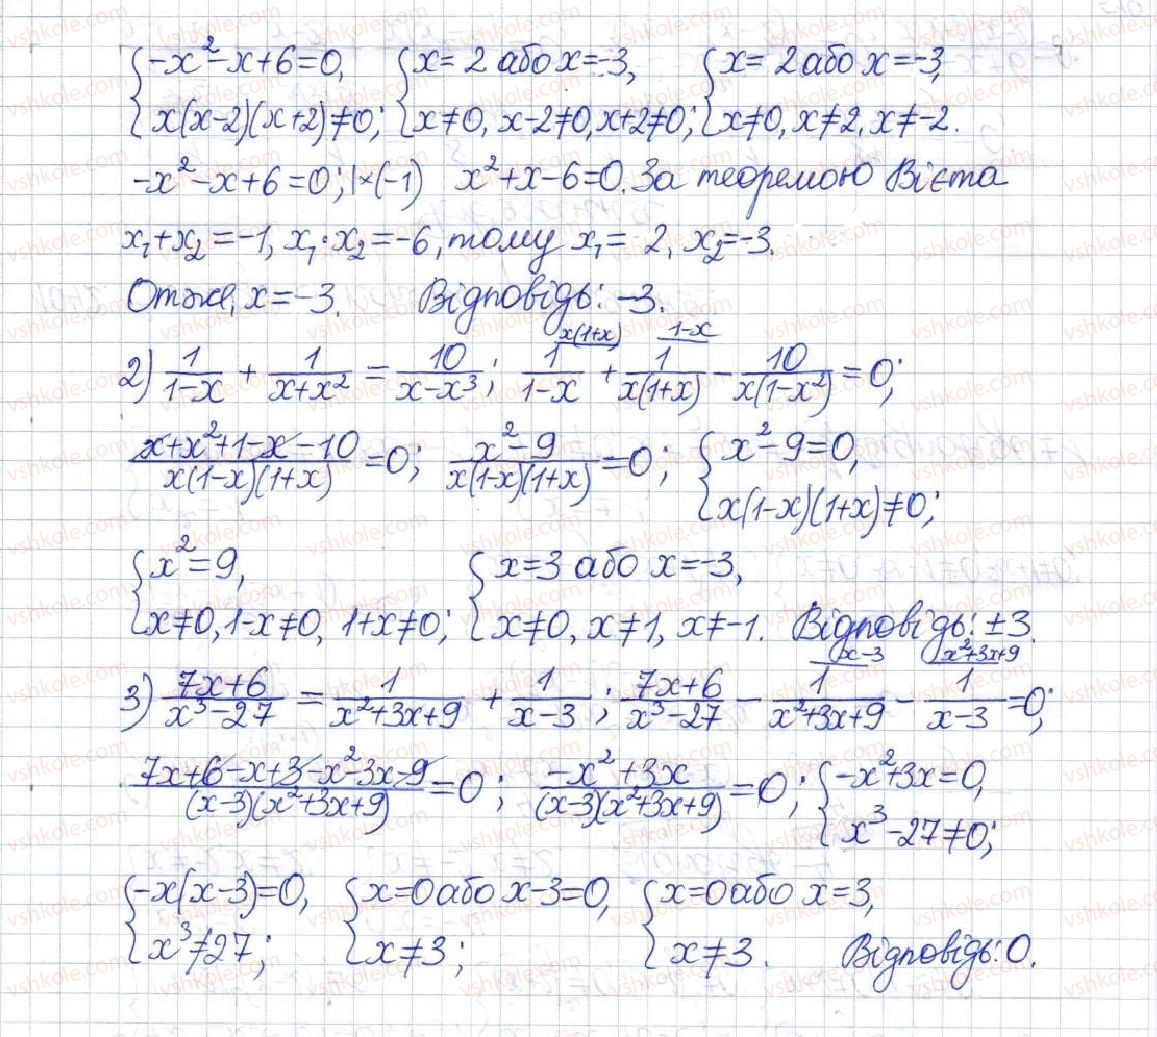 {-x²-x+6=0, x(x-2)(x+2)≠0; {x=2 або x=-3, x≠0, x-2≠0, x+2≠0; {x=2 або x=-3, x≠0, x≠2, x≠-2.
-x²-x+6=0; |×(-1) x²+x-6=0. За теоремою Вієта
x₁+x₂=-1, x₁·x₂=-6, тому x₁=2, x₂=-3.
Отже, x=-3. Відповідь: -3.
2) 1/(1-x) + 1/(x+x²) = 10/(x-x³); 1/(1-x) (x(1+x) + 1/(x(1+x)) (1-x - 10/(x(1-x²)) = 0;
(x+x²+1-x-10)/(x(1-x)(1+x)) = 0; (x²-9)/(x(1-x)(1+x)) = 0; {x²-9=0, x(1-x)(1+x)≠0;
{x²=9, x≠0, 1-x≠0, 1+x≠0; {x=3 або x=-3, x≠0, x≠1, x≠-1. Відповідь: ±3.
3) (7x+6)/(x³-27) = 1/(x²+3x+9) + 1/(x-3); (7x+6)/(x³-27) - 1/(x²+3x+9) (x-3 - 1/(x-3) (x²+3x+9 = 0;
(7x+6-x+3-x²-3x-9)/((x-3)(x²+3x+9)) = 0; (-x²+3x)/((x-3)(x²+3x+9)) = 0; {-x²+3x=0, x³-27≠0;
{-x(x-3)=0, x³≠27; {x=0 або x-3=0, x≠3; {x=0 або x=3, x≠3. Відповідь: 0.